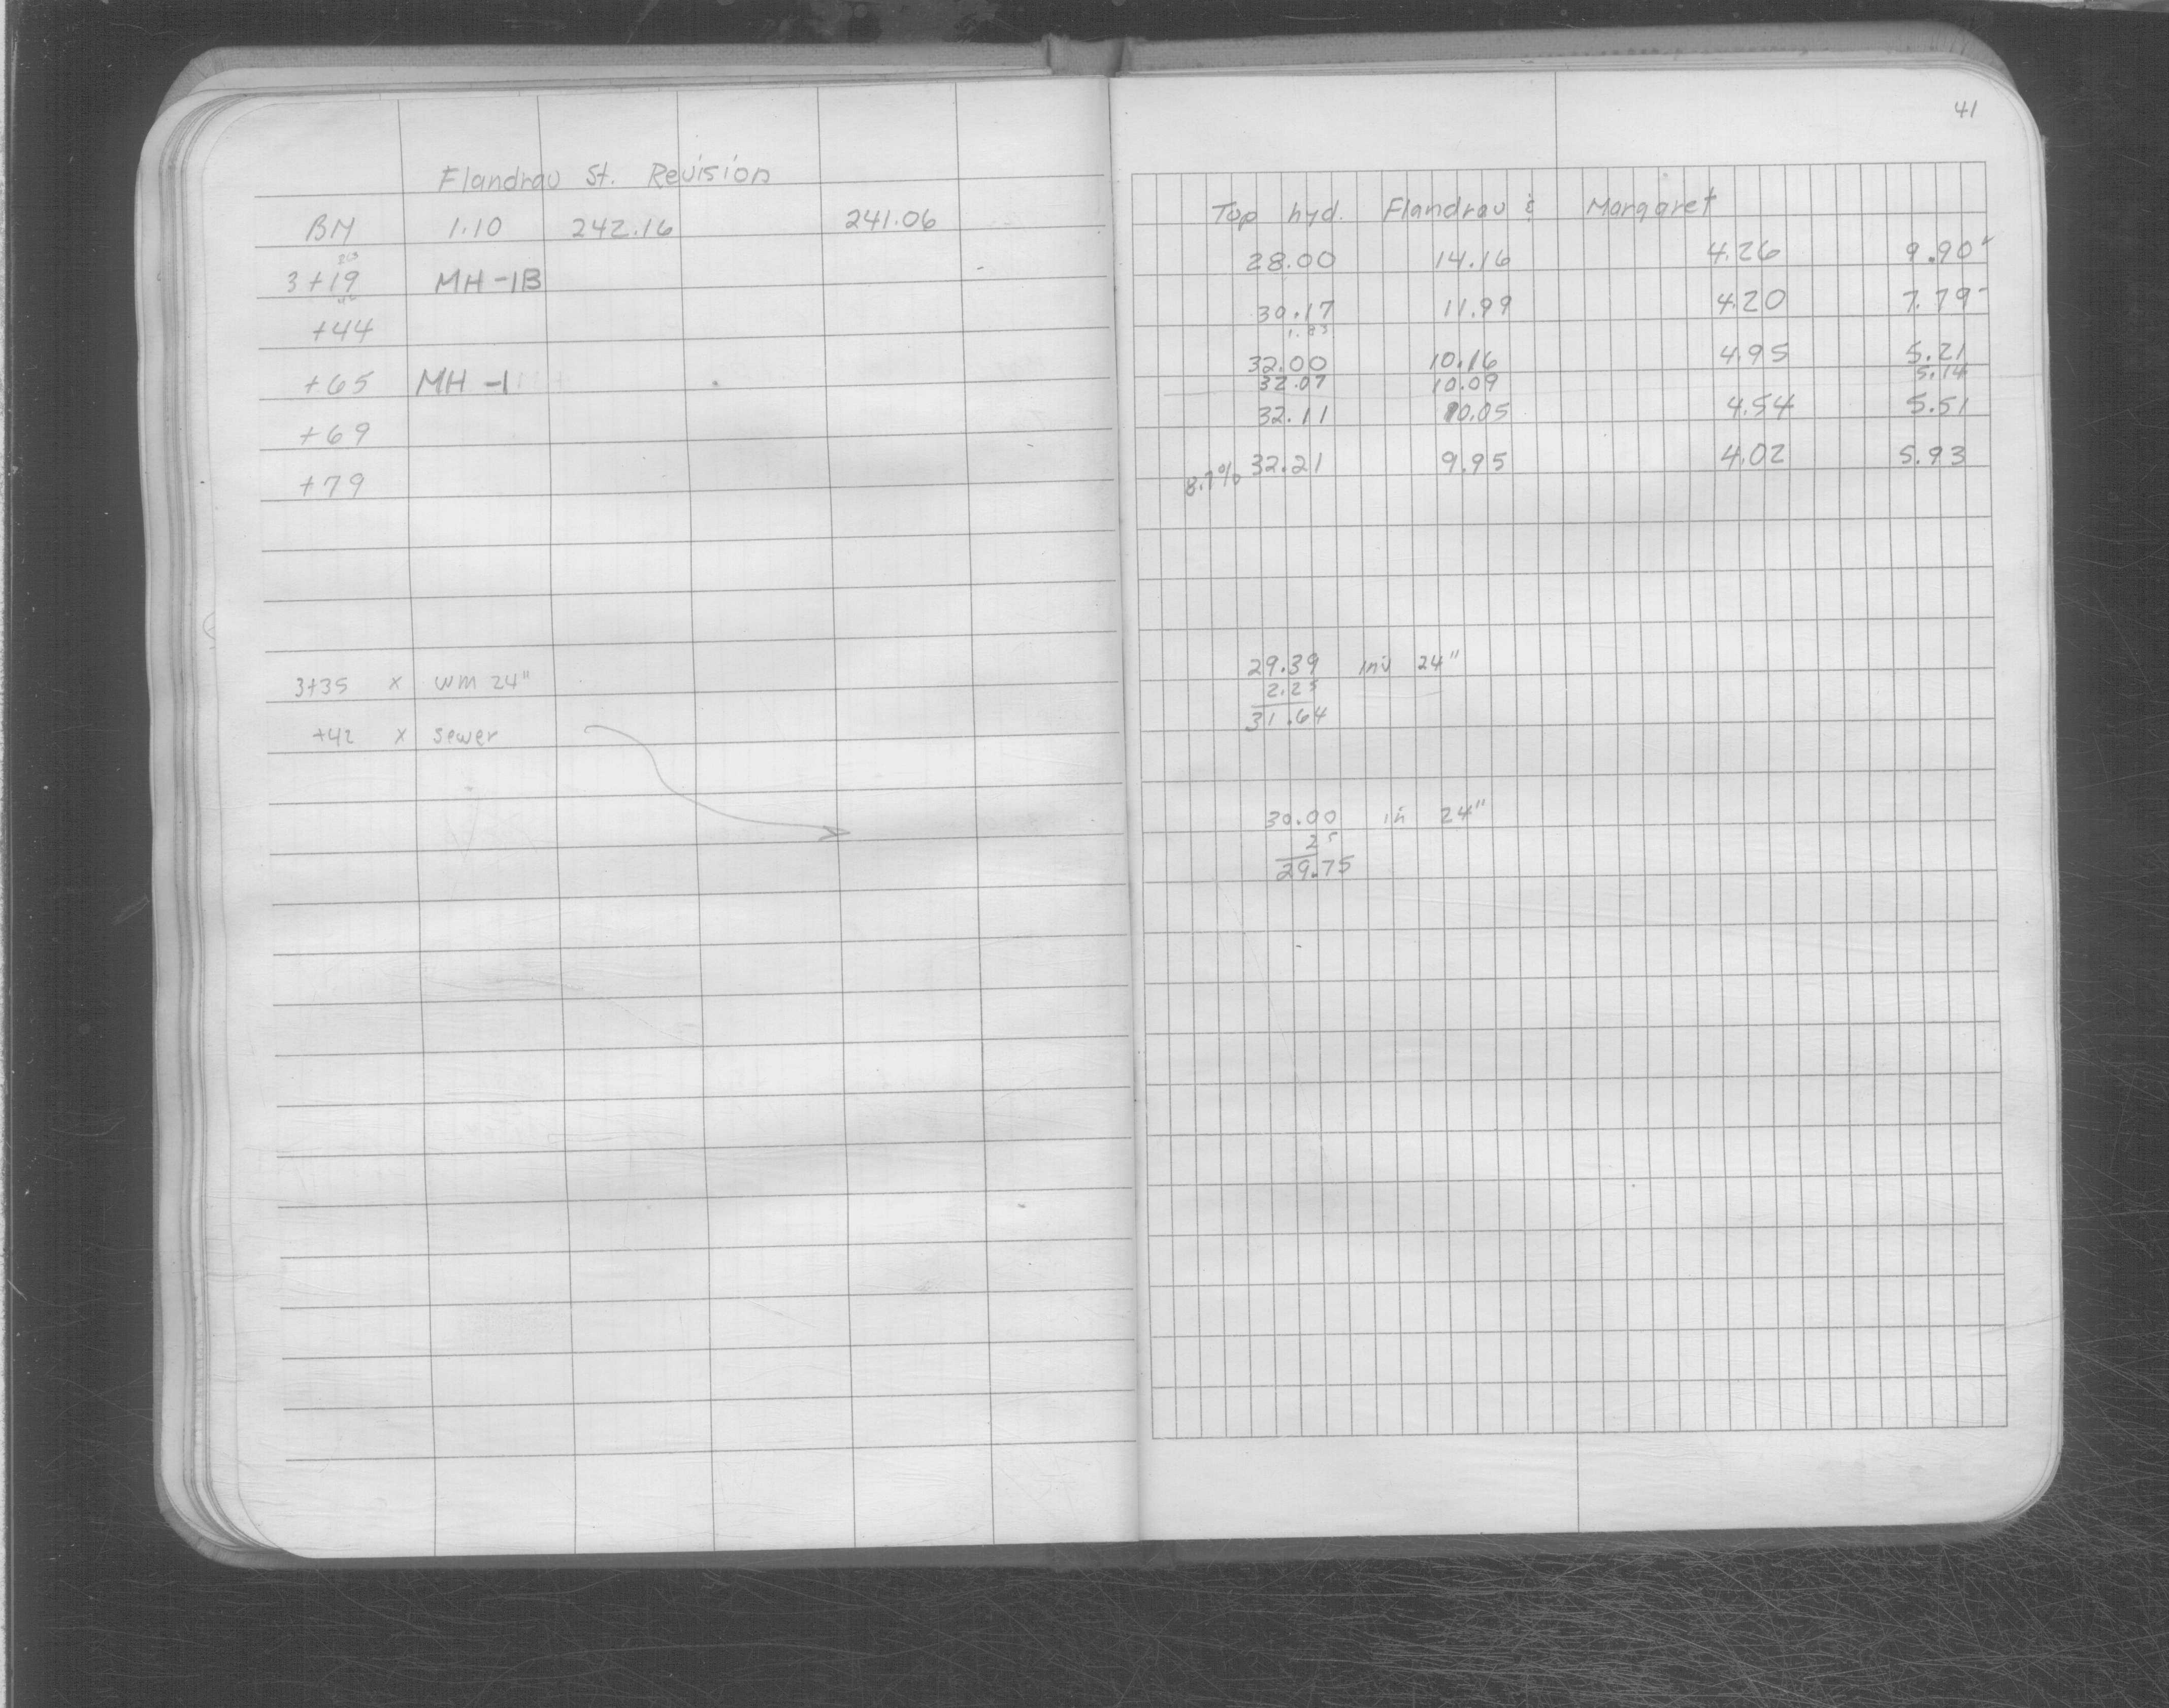 41
Flandrau St. Revision
BM 1.10 242.16 241.06
3+19 MH-1B
+44
+65 MH-1
+69
+79
3+35 x WM 24"
+42 x sewer
Top hyd. Flandrau & Margaret
28.00 14.16 4.26 9.90
30.17 11.99 4.20 7.79
1.83
32.00 10.16 4.95 5.21
32.07 10.09 5.14
32.11 10.05 4.54 5.51
8.7% 32.21 9.95 4.02 5.93
29.39 inv 24"
2.25
31.64
30.00 in 24"
25
29.75